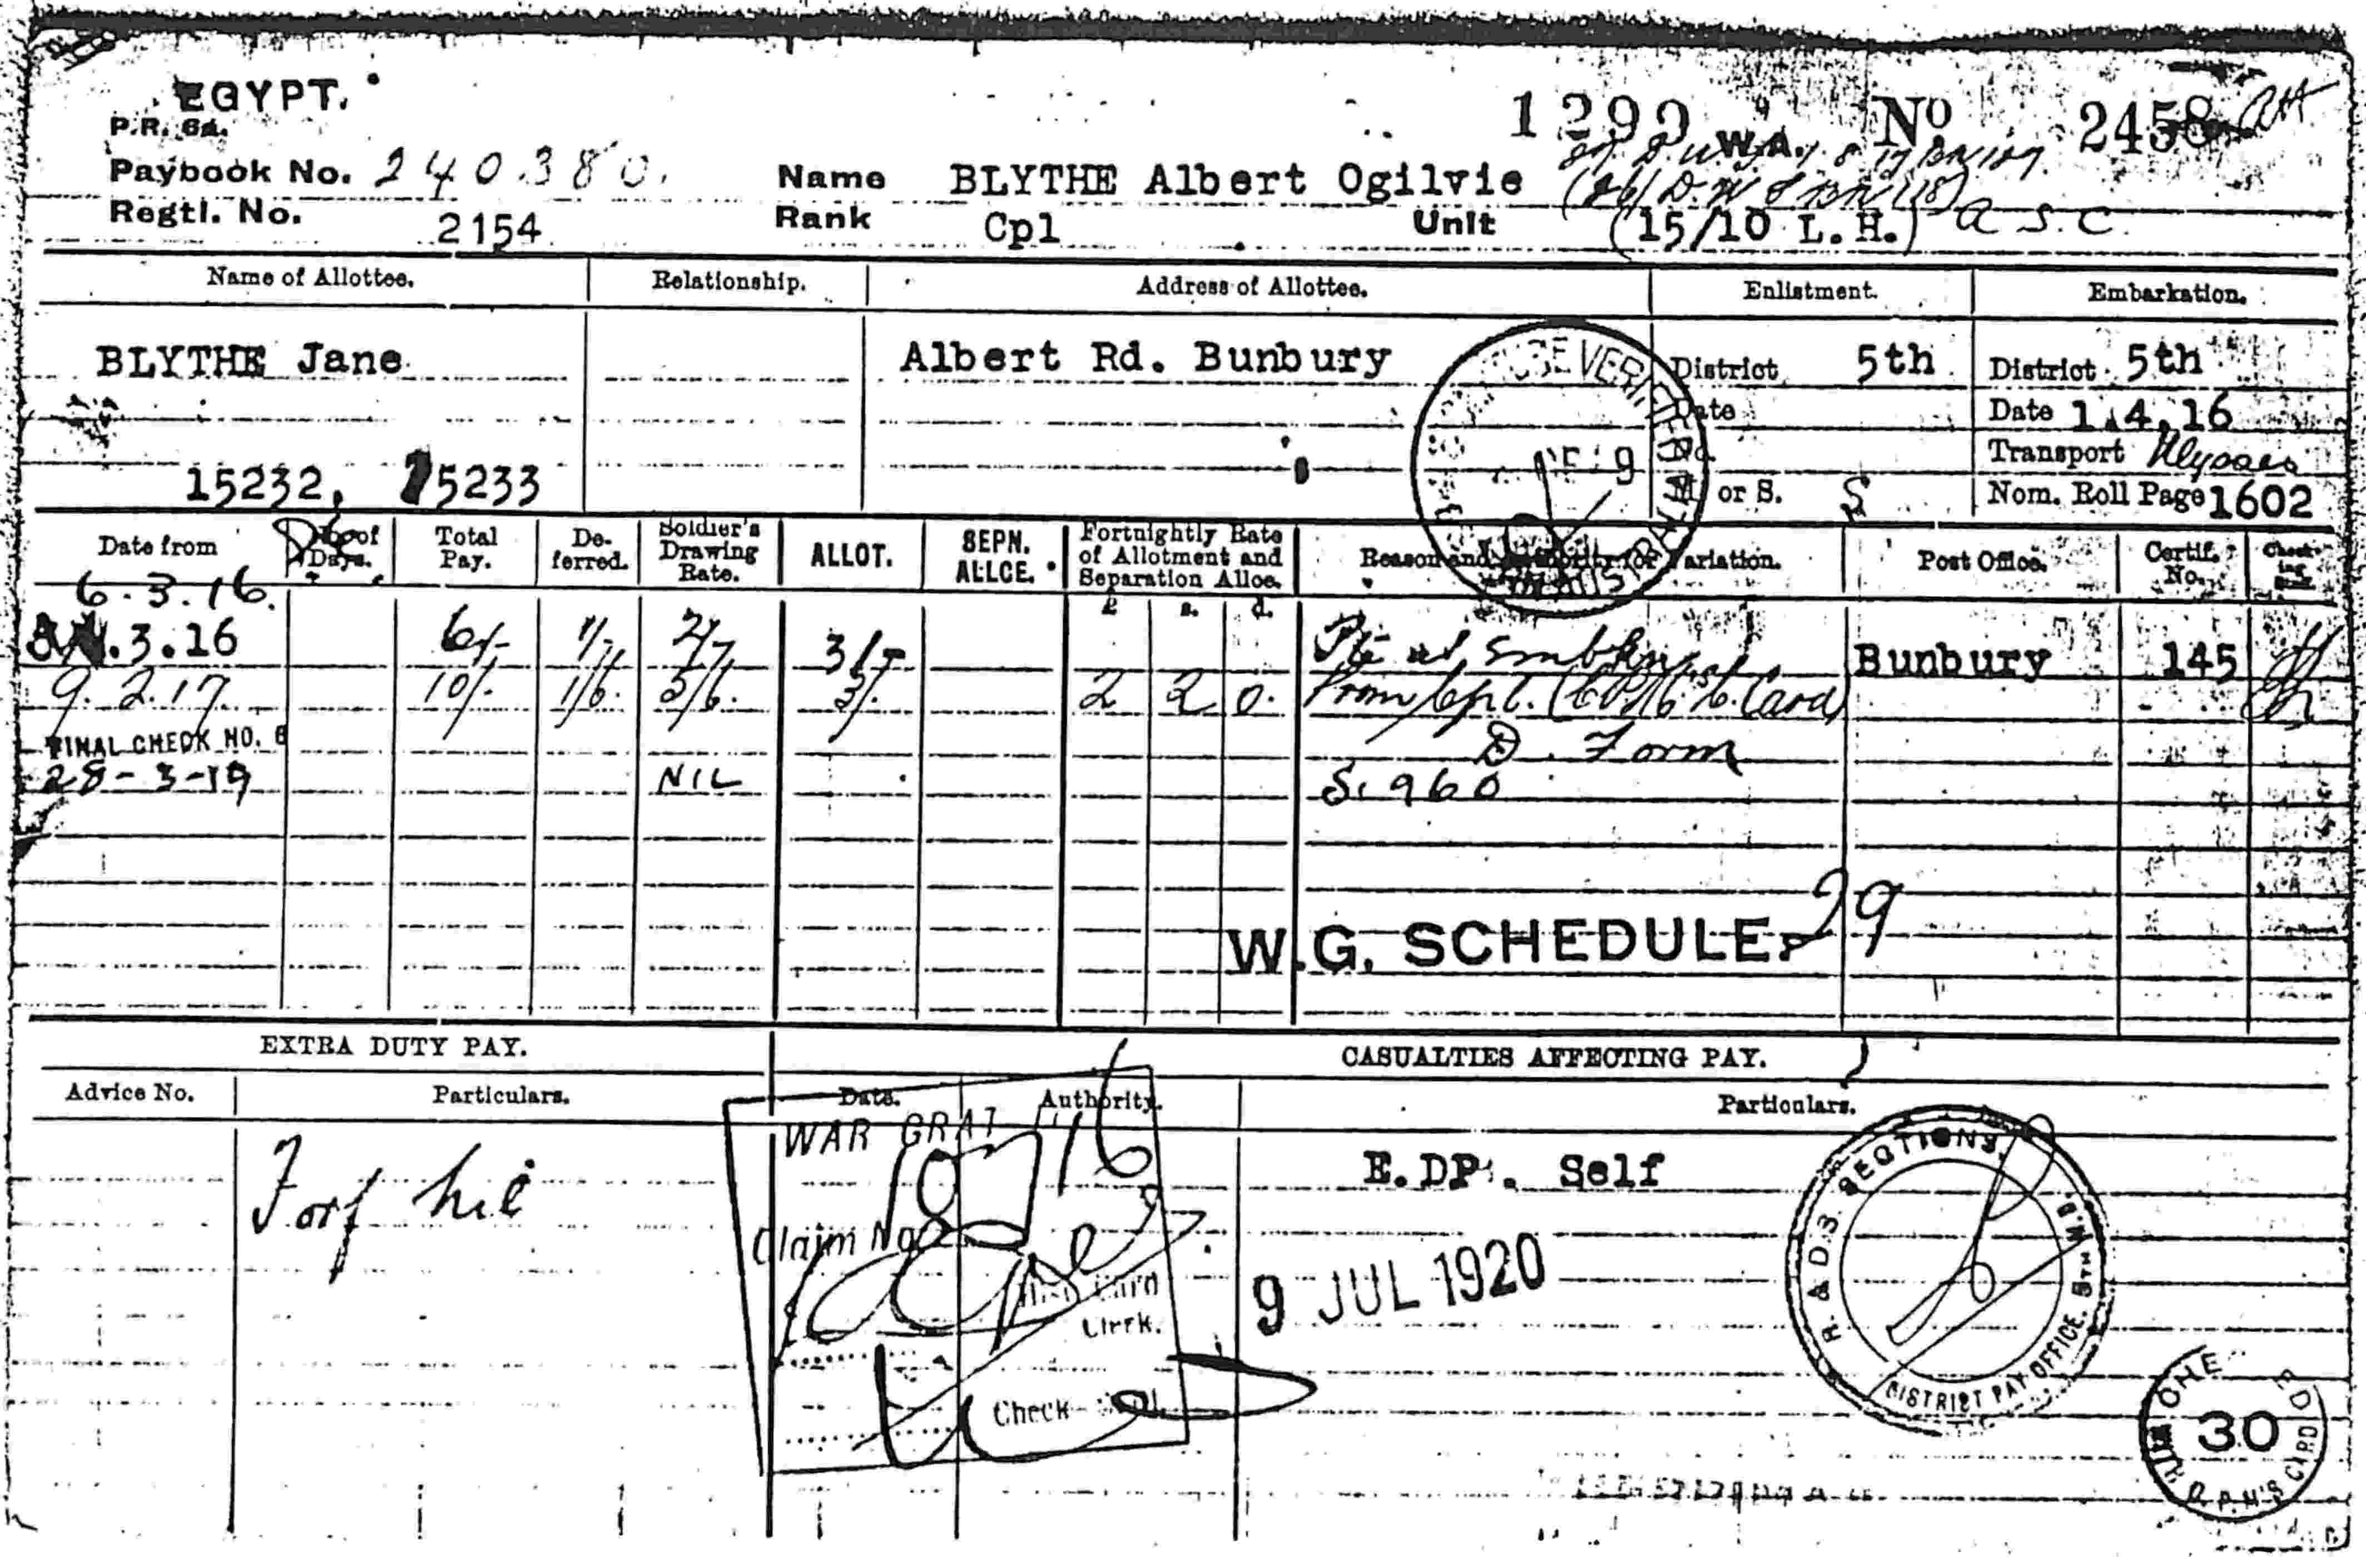 EGYPT.
P.R. 64.
1299 W.A. No 2458
Paybook No. 240380. Name BLYTHE Albert Ogilvie
Regtl. No. 2154 Rank Cpl Unit (15/10 L.H.) A S. C.
Name of Allottee. Relationship. Address of Allottee. Enlistment. Embarkation.
BLYTHE Jane Albert Rd. Bunbury District 5th District 5th
Date Date 1.4.16
No. Transport Ulysses
15232, 15233 M or S. S Nom. Roll Page 1602
Date from No. of Days. Total Pay. De-ferred. Soldier's Drawing Rate. ALLOT. SEPN. ALLCE. Fortnightly Rate of Allotment and Separation Allce. Reason and Authority for Variation. Post Office. Certif. No. Check-ing
£ s. d.
6.3.16.
.3.16 6/- 1/- 2/- 3/- Pte at Embkn Bunbury 145
9.2.17. 10/- 1/6. 5/6. 3/. 2 2 0. Prom Cpl. Card)
FINAL CHECK NO. 6 D. Form
28-3-19 NIL S. 960
W.G. SCHEDULE. 29
EXTRA DUTY PAY. CASUALTIES AFFECTING PAY.
Advice No. Particulars. Date. Authority. Particulars.
WAR GRAT
Forf nil
E.DP. Self
Claim No
9 JUL 1920
Card
Clerk.
Check
R. & D.3. SECTIONS.
DISTRICT PAY OFFICE. 5TH M.D.
30